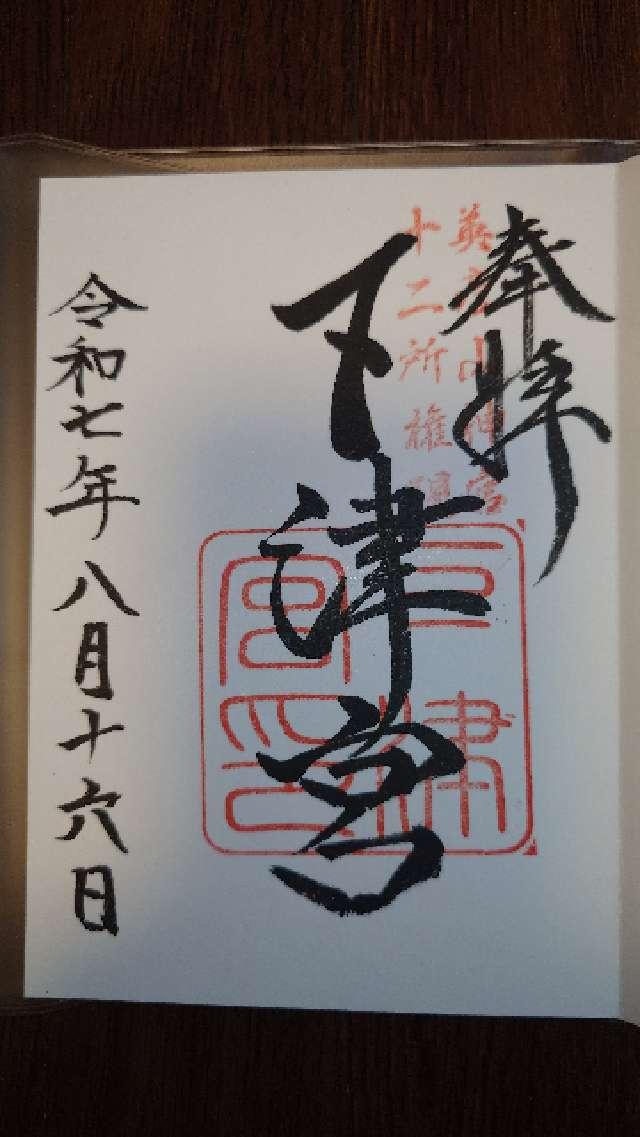 奉拝
英彦山神宮
十二所権現
下津宮
下津宮印
令和七年八月十六日